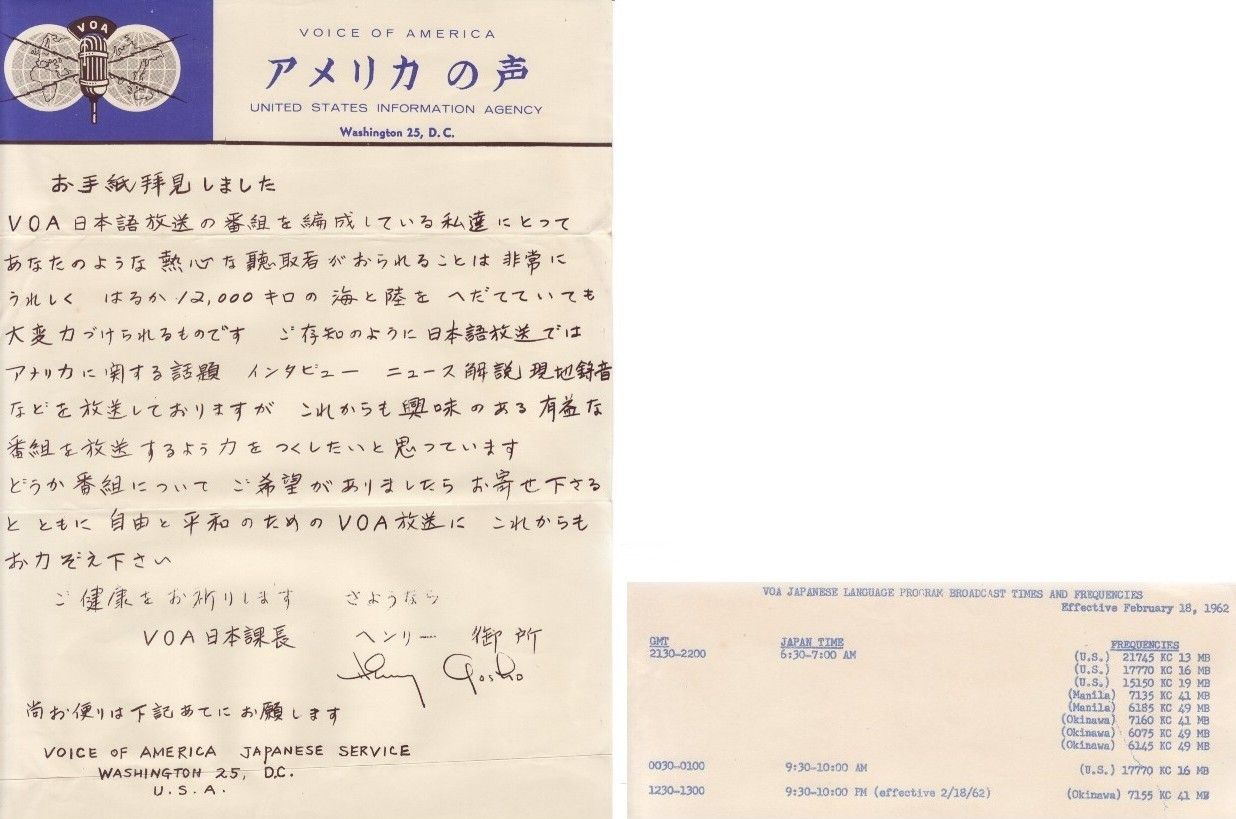 VOA
VOICE OF AMERICA
アメリカの声
UNITED STATES INFORMATION AGENCY
Washington 25, D.C.
お手紙拝見しました
VOA日本語放送の番組を編成している私達にとって
あなたのような熱心な聽取者がおられることは非常に
うれしく はるか12,000キロの海と陸をへだてていても
大変力づけられるものです ご存知のように日本語放送では
アメリカに関する話題 インタビュー ニュース解説 現地録音
などを放送しておりますが これからも興味のある有益な
番組を放送するよう力をつくしたいと思っています
どうか番組について ご希望がありましたらお寄せ下さる
とともに自由と平和のためのVOA放送に これからも
お力ぞえ下さい
ご健康をお祈りします さようなら
VOA日本課長 ヘンリー 御所
Henry Gosho
尚お便りは下記あてにお願します
VOICE OF AMERICA JAPANESE SERVICE
WASHINGTON 25, D.C.
U.S.A.
VOA JAPANESE LANGUAGE PROGRAM BROADCAST TIMES AND FREQUENCIES
Effective February 18, 1962
GMT JAPAN TIME FREQUENCIES
2130-2200 6:30-7:00 AM (U.S.) 21745 KC 13 MB
(U.S.) 17770 KC 16 MB
(U.S.) 15150 KC 19 MB
(Manila) 7135 KC 41 MB
(Manila) 6185 KC 49 MB
(Okinawa) 7160 KC 41 MB
(Okinawa) 6075 KC 49 MB
(Okinawa) 6145 KC 49 MB
0030-0100 9:30-10:00 AM (U.S.) 17770 KC 16 MB
1230-1300 9:30-10:00 PM (effective 2/18/62) (Okinawa) 7155 KC 41 MB